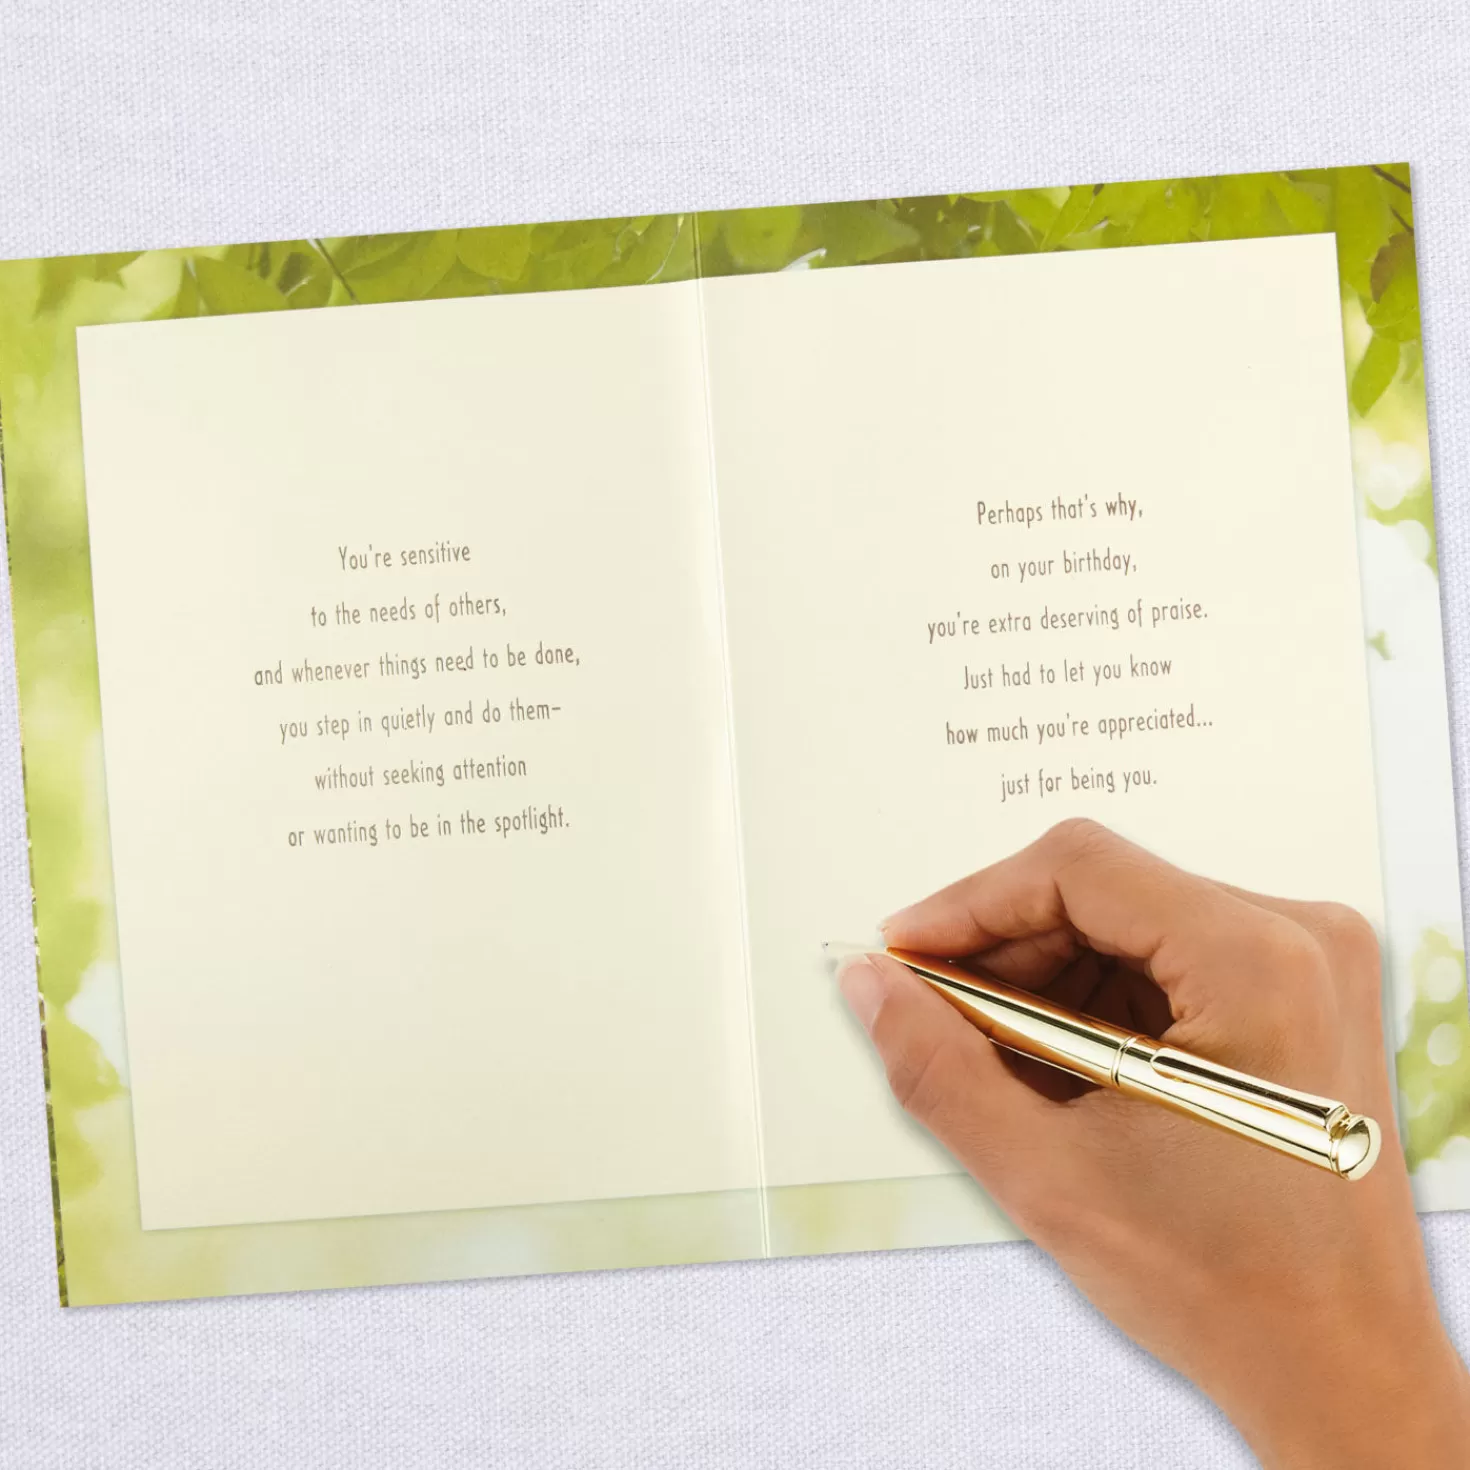 You're sensitive
to the needs of others,
and whenever things need to be done,
you step in quietly and do them–
without seeking attention
or wanting to be in the spotlight.
Perhaps that's why,
on your birthday,
you're extra deserving of praise.
Just had to let you know
how much you're appreciated...
just for being you.